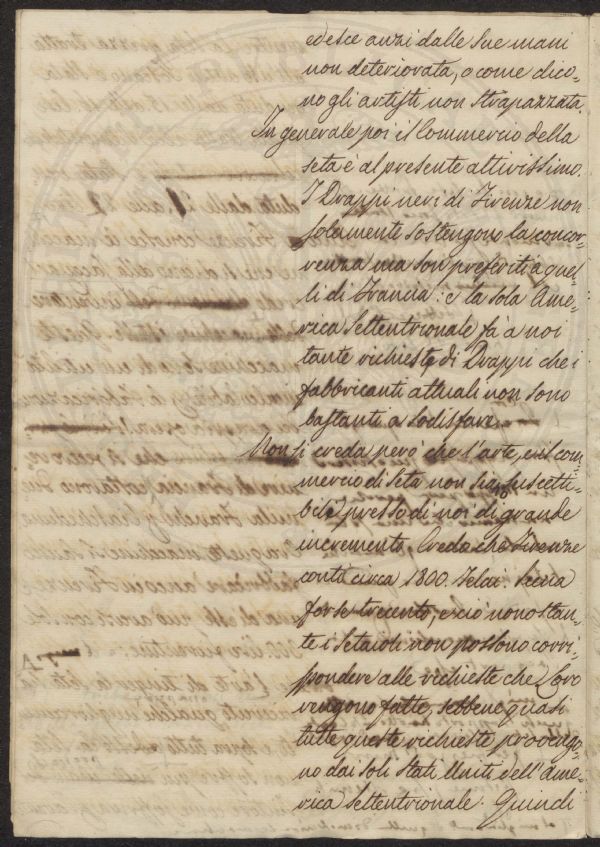 edesce anzi dalle sue mani
non deteriorata, o come dico-
no gli artisti non strapazzata.
In generale poi il Commercio della
seta è al presente attivissimo.
I Drappi neri di Firenze non
solamente sostengono la concor-
renza ma son preferiti a quel-
li di Francia: e la sola Ame-
rica Settentrionale fà a noi
tante richieste di Drappi che i
fabbricanti attuali non sono
bastanti a sodisfare.
Non si creda però che l'arte, ed il com-
mercio di Seta non sia suscetti-
bile presso di noi di grande
incremento. Credo che Firenze
conti circa 1800. Telai. Siena
forse trecento, e ciò nonostan-
te i setaioli non possono corri-
spondere alle richieste che Loro
vengono fatte, sebbene quasi
tutte queste richieste provengo-
no dai soli Stati Uniti dell'Ame-
rica Settentrionale. Quindi